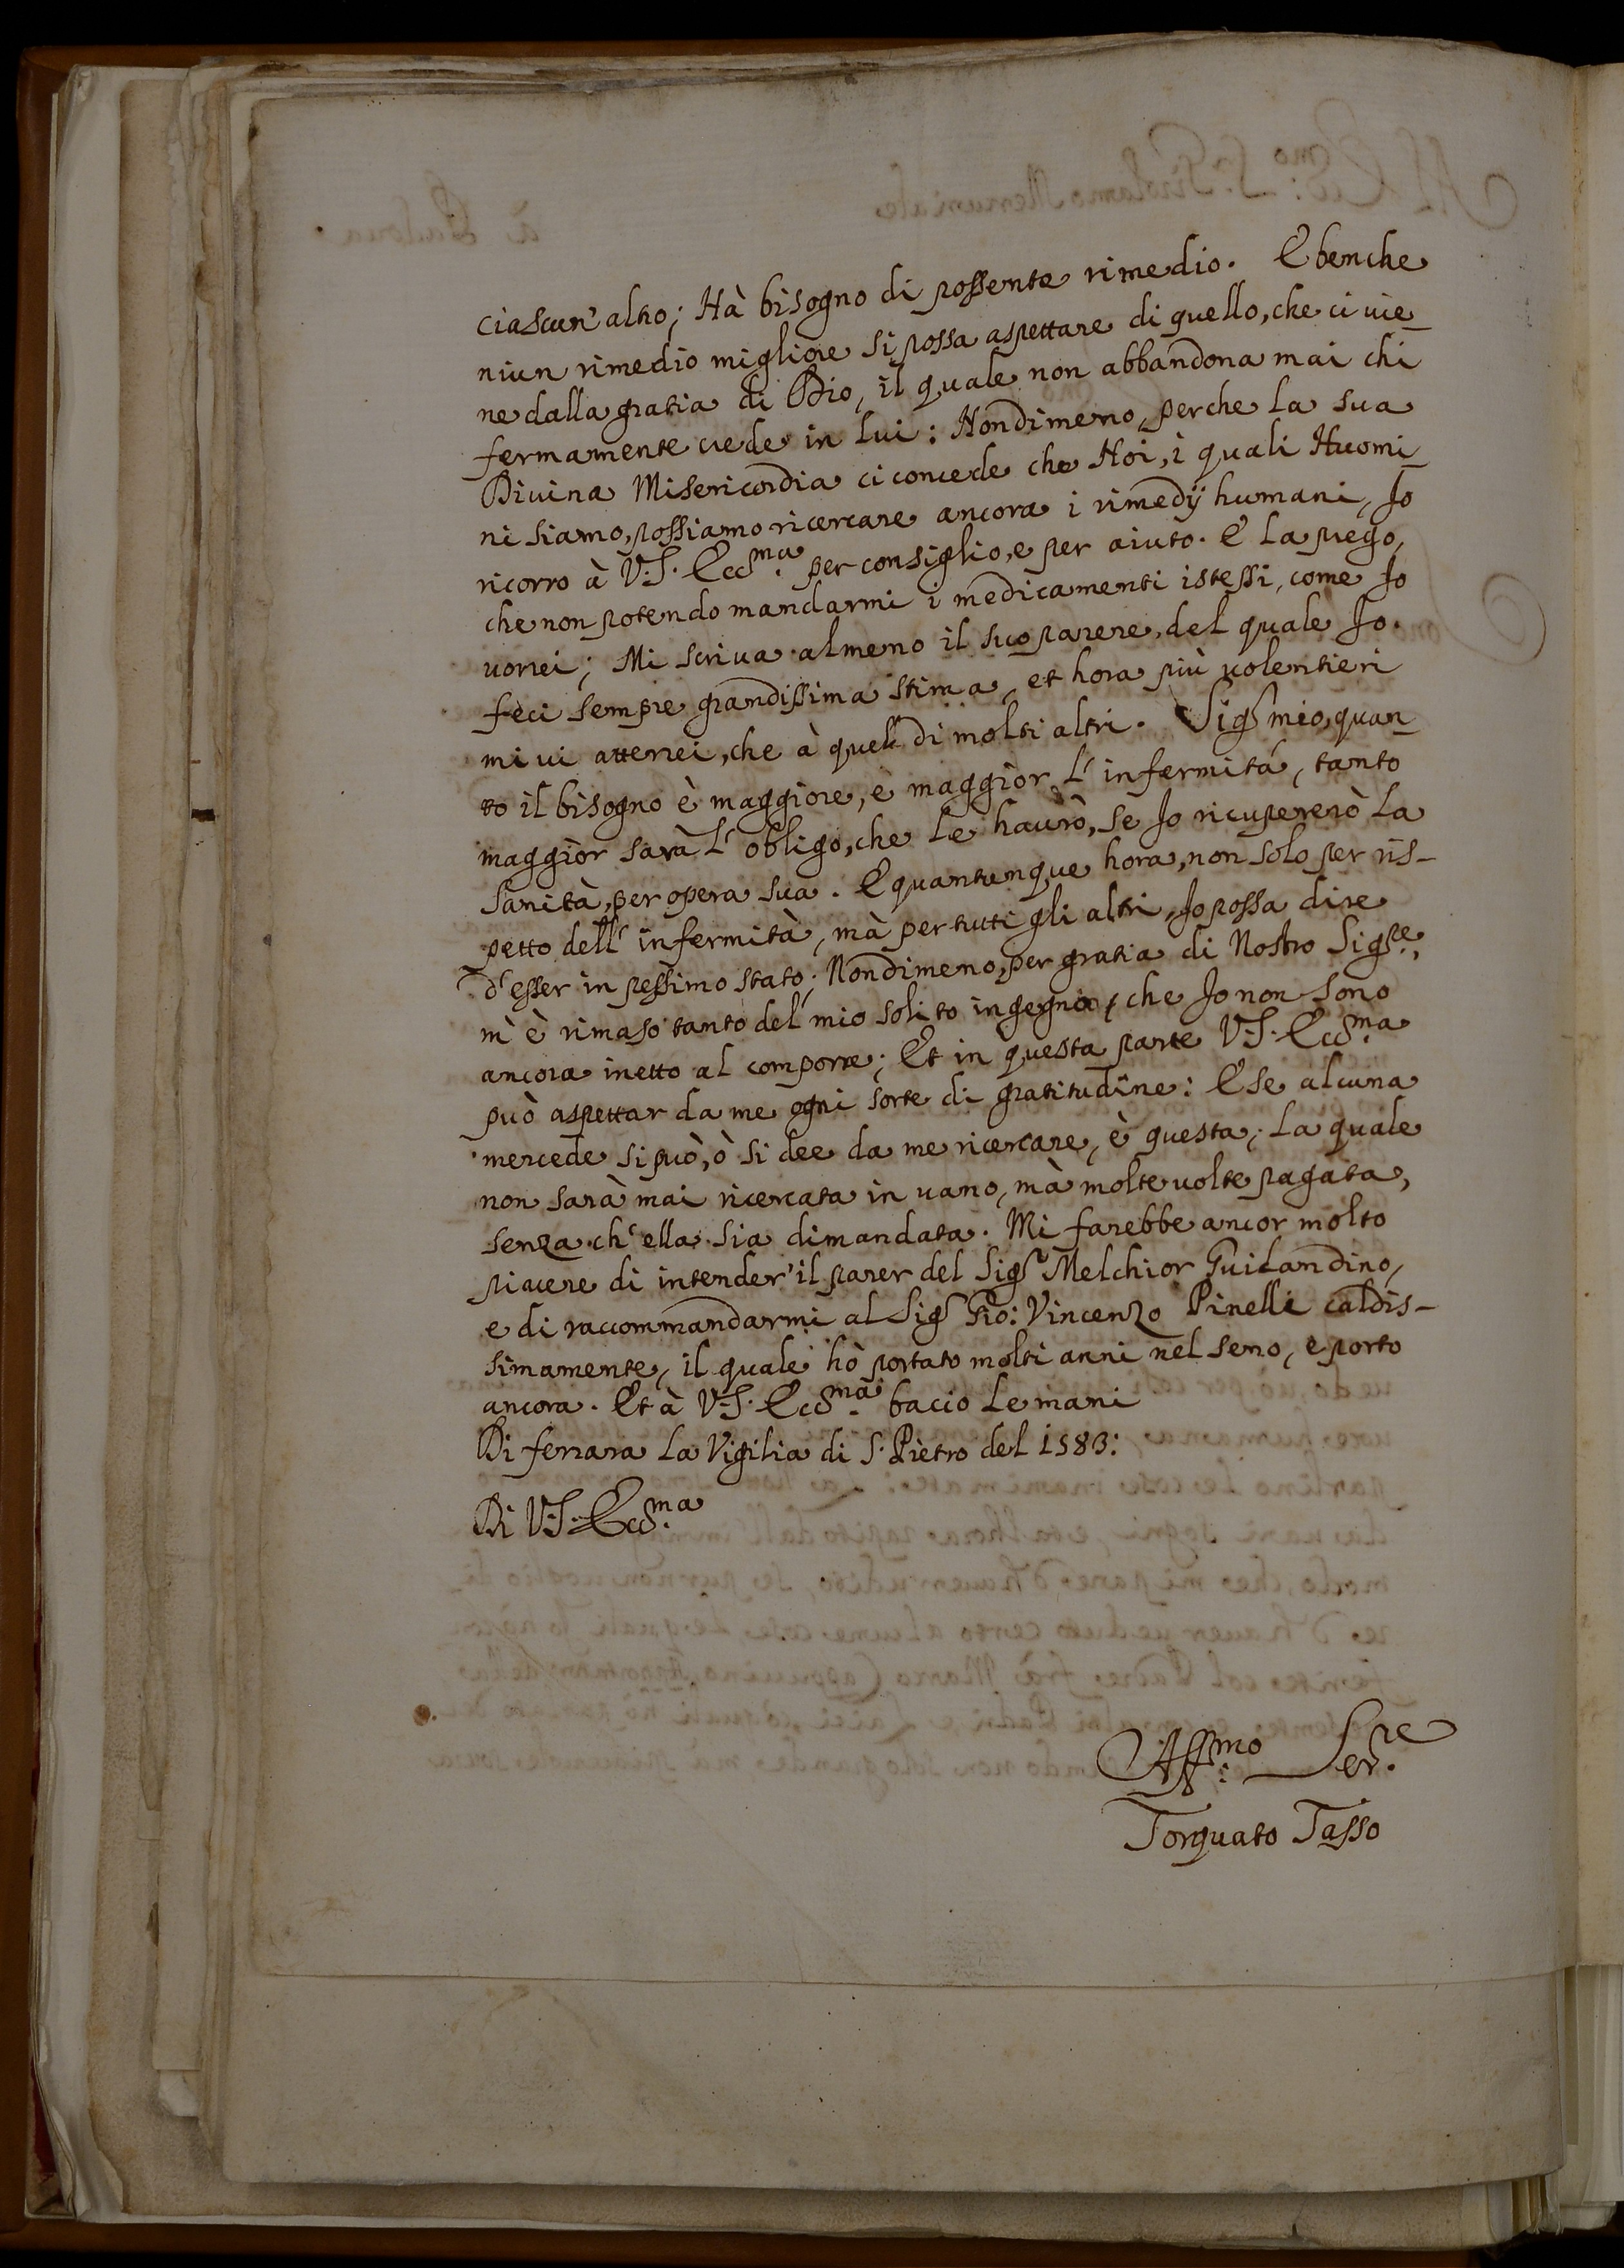 ciascun'altro; Hà bisogno di possente rimedio. E benche
niun rimedio migliore si possa aspettare di quello, che ci uie_
ne dalla gratia di Dio, il quale non abbandona mai chi
fermamente crede in lui: Nondimeno, perche la sua
Diuina Misericordia ci concede che Noi, i quali Huomi_
ni siamo, possiamo ricercare ancora i rimedij humani, Io
ricorro à V:S. Ecc.ma per consiglio, e per aiuto. E la prego,
che non potendo mandarmi i medicamenti istessi, come Io
uorrei; Mi scriua almeno il suo parere, del quale Io
feci sempre grandissima stima, et hora più uolentieri
mi ui atterrei, che à quell di molti altri. Sigr mio, quan_
to il bisogno è maggiore, e maggior l'infermità, tanto
maggior sarà l'obligo, che le haurò, se Io ricupererò la
sanità, per opera sua. E quantunque hora, non solo per ris-
petto dell'infermità, mà per tutti gli altri, Io possa dire
d'esser in pessimo stato; Nondimeno, per gratia di Nostro Sigre,
m'è rimaso tanto del mio solito ingegno, che Io non sono
ancora inetto al comporre; Et in questa parte V:S. Ecc.ma
può aspettar da me ogni sorte di gratitudine: E se alcuna
mercede si può, ò si dee da me ricercare, è questa; la quale
non sarà mai ricercata in uano, mà molte uolte pagata,
senza ch'ella sia dimandata. Mi farebbe ancor molto
piacere di intender'il parer del Sigr Melchior Guilandino,
e di raccommandarmi al Sigr Gio: Vincenzo Pinelli caldis-
simamente, il quale hò portato molti anni nel seno, e porto
ancora. Et à V:S. Ecc.ma bacio le mani
Di ferrara la Vigilia di S. Pietro del 1583:
Di V:S. Ecc.ma
Aff.mo Ser.re
Torquato Tasso